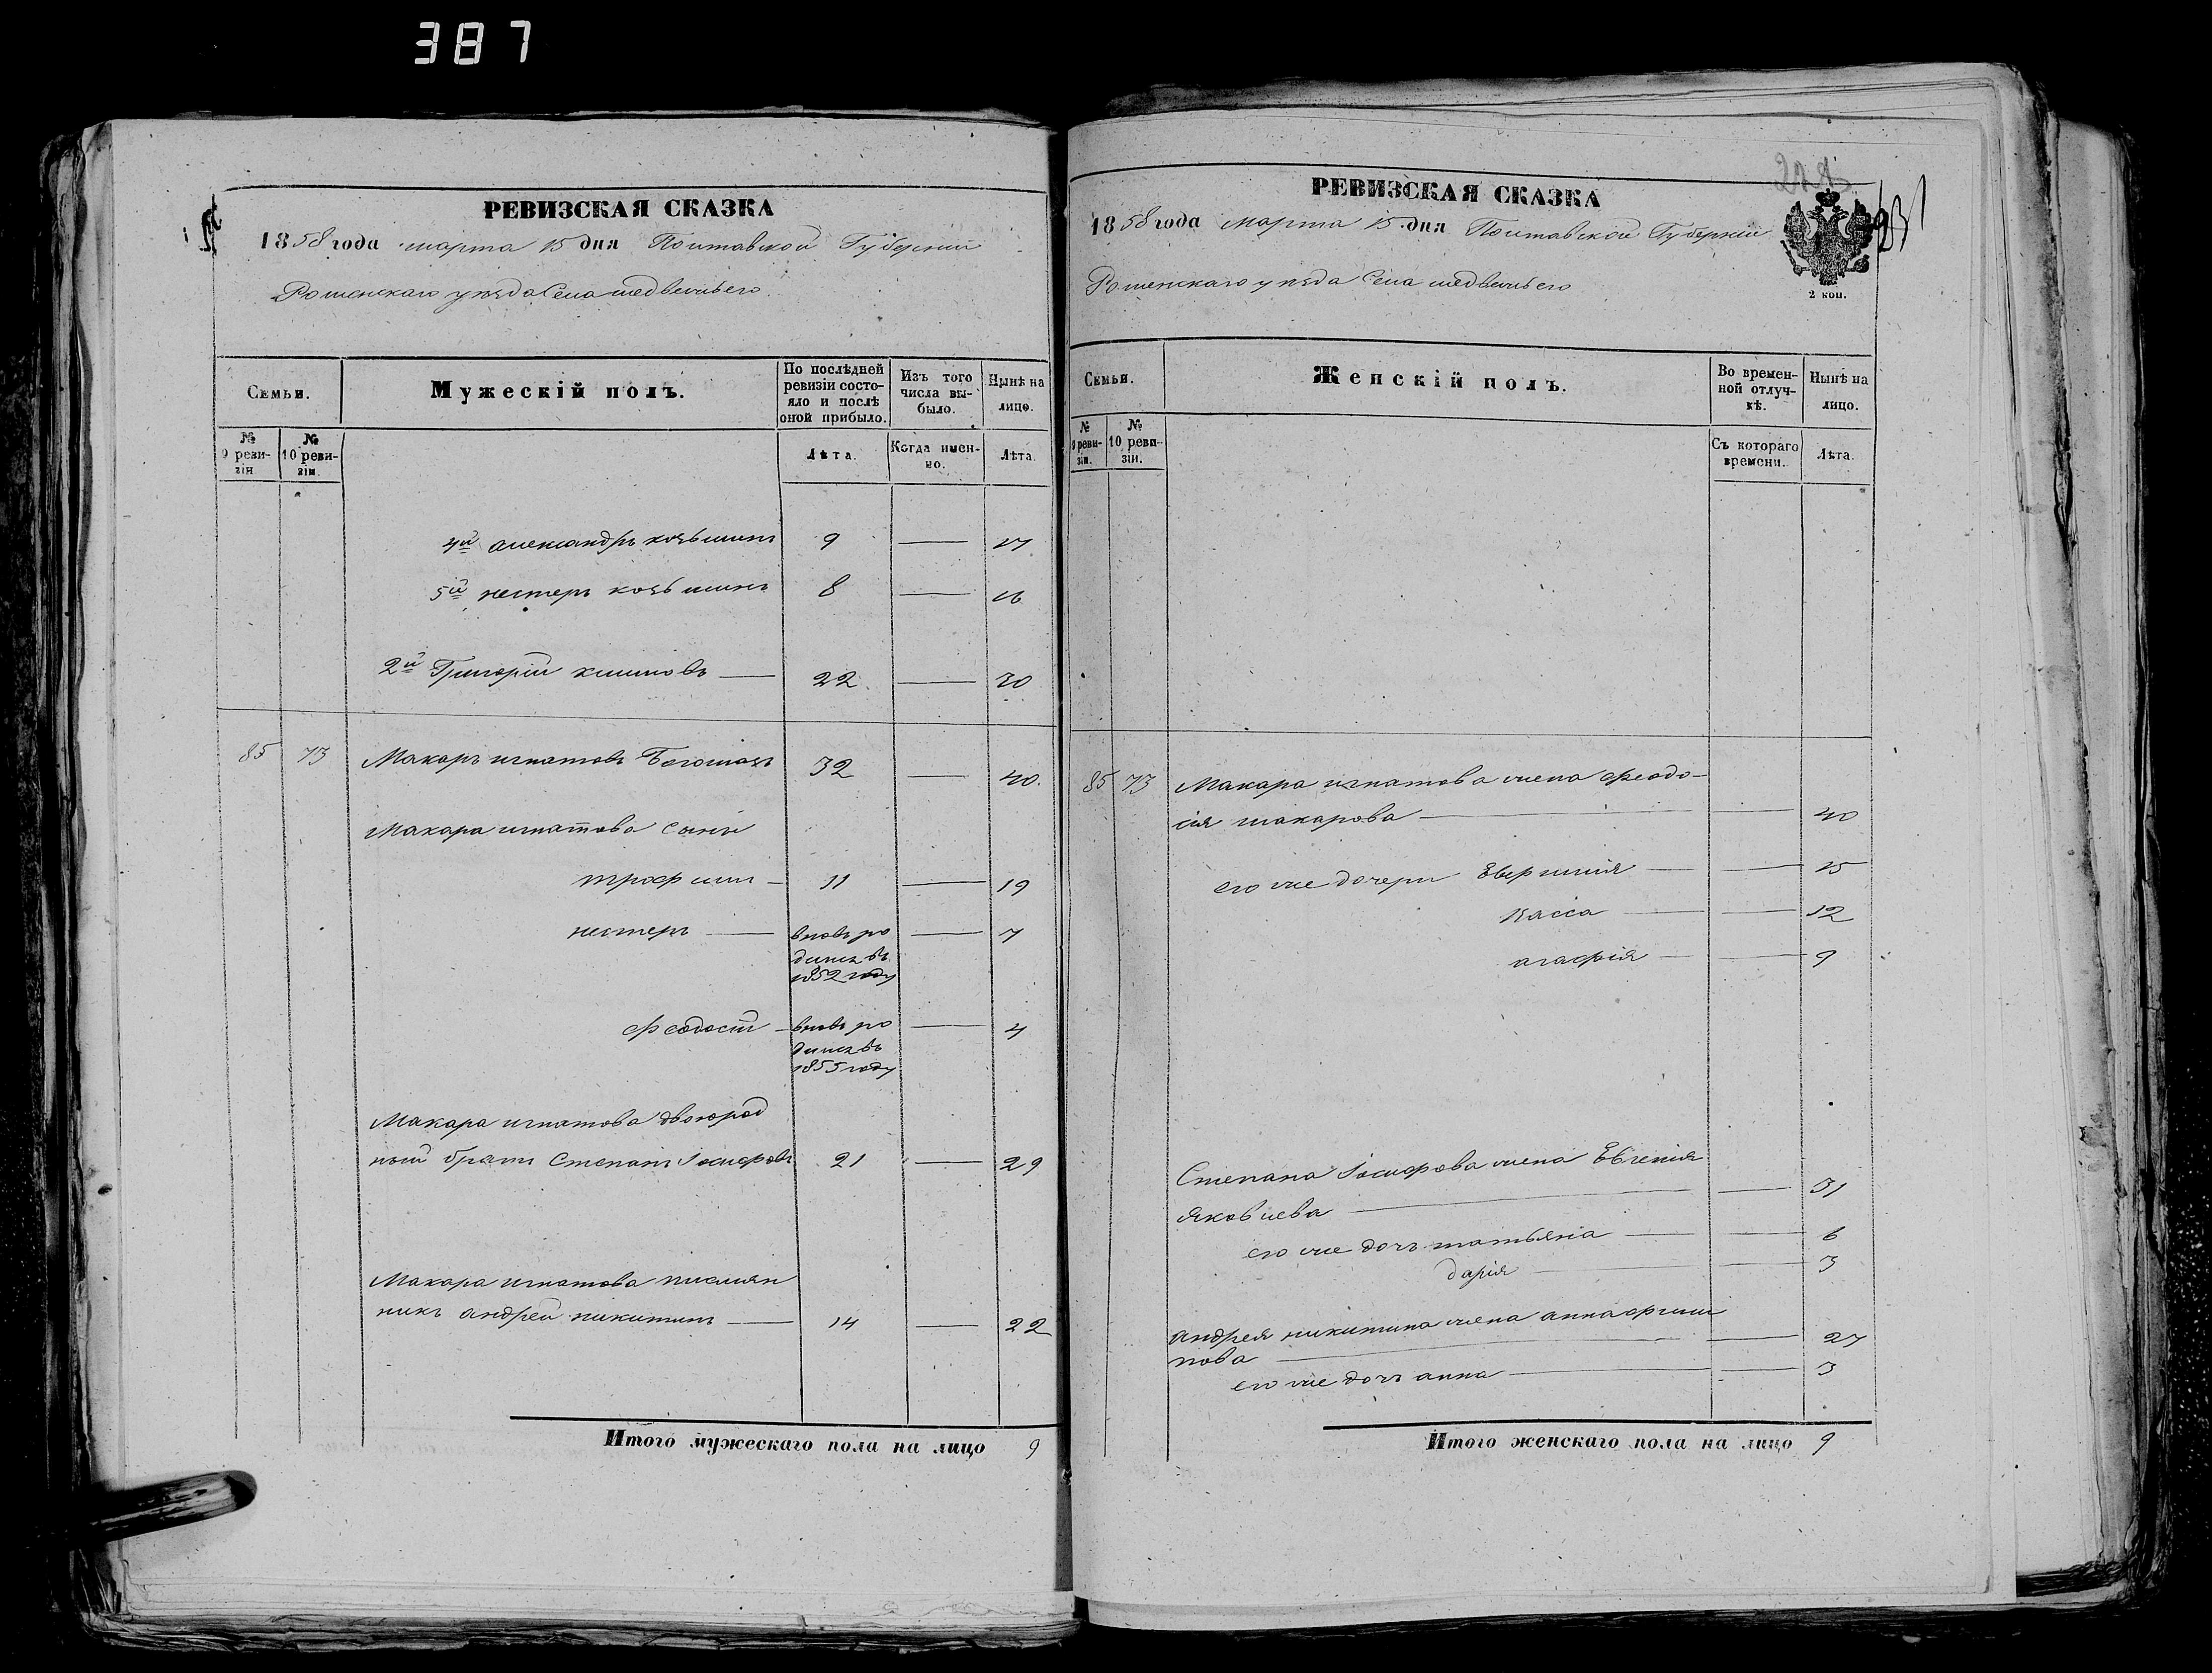 387
РЕВИЗСКАЯ СКАЗКА
1858 года марта 15 дня Полтавской Губернии
Роменскаго уезда Села медвежьего
Семьи.
Мужескій полъ.
По послѣдней ревизіи состояло и послѣ оной прибыло.
Изъ того числа выбыло.
Нынѣ на лицо.
№ 9 ревизіи
№ 10 ревизіи.
Лѣта.
Когда именно.
Лѣта.
4й александръ козьминъ 9 — 17
5й нестеръ козьминъ 8 — 16
2й Григорій климовъ — 22 — 30
85 73 Макаръ игнатовъ 32 — 40.
Макара игнатова сыны
трофим — 11 — 19
нестеръ — вновь ро — 7
дился въ
1852 году
феодосій — вновь ро — 4
дился въ
1855 году
Макара игнатова двоюрод
ный братъ Степанъ Іосифовъ 21 — 29
Макара игнатова племян
никъ андрей никитинъ — 14 — 22
Итого мужескаго пола на лицо 9
РЕВИЗСКАЯ СКАЗКА
1858 года марта 15 дня Полтавской Губерніи
Роменскаго уезда Села медвежьего
2 коп.
Семьи.
Женскій полъ.
Во временной отлучкѣ.
Нынѣ на лицо.
№ 9 ревизіи.
№ 10 ревизіи.
Съ котораго времени.
Лѣта.
85 73 Макара игнатова жена феодо-
сія макарова — — 40
его же дочери Евфимія — — 15
Васса — — 12
агафія — — 9
Степана Іосифова жена Евгенія
яковлева — — 31
его же дочь татьяна — — 6
дарія — — 3
андрея никитина жена анна
пова — — 27
его же дочь анна — — 3
Итого женскаго пола на лицо 9